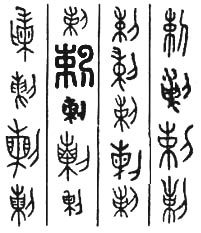 剌剌剌剌
剌剌剌剌剌
剌剌剌剌剌
剌剌剌